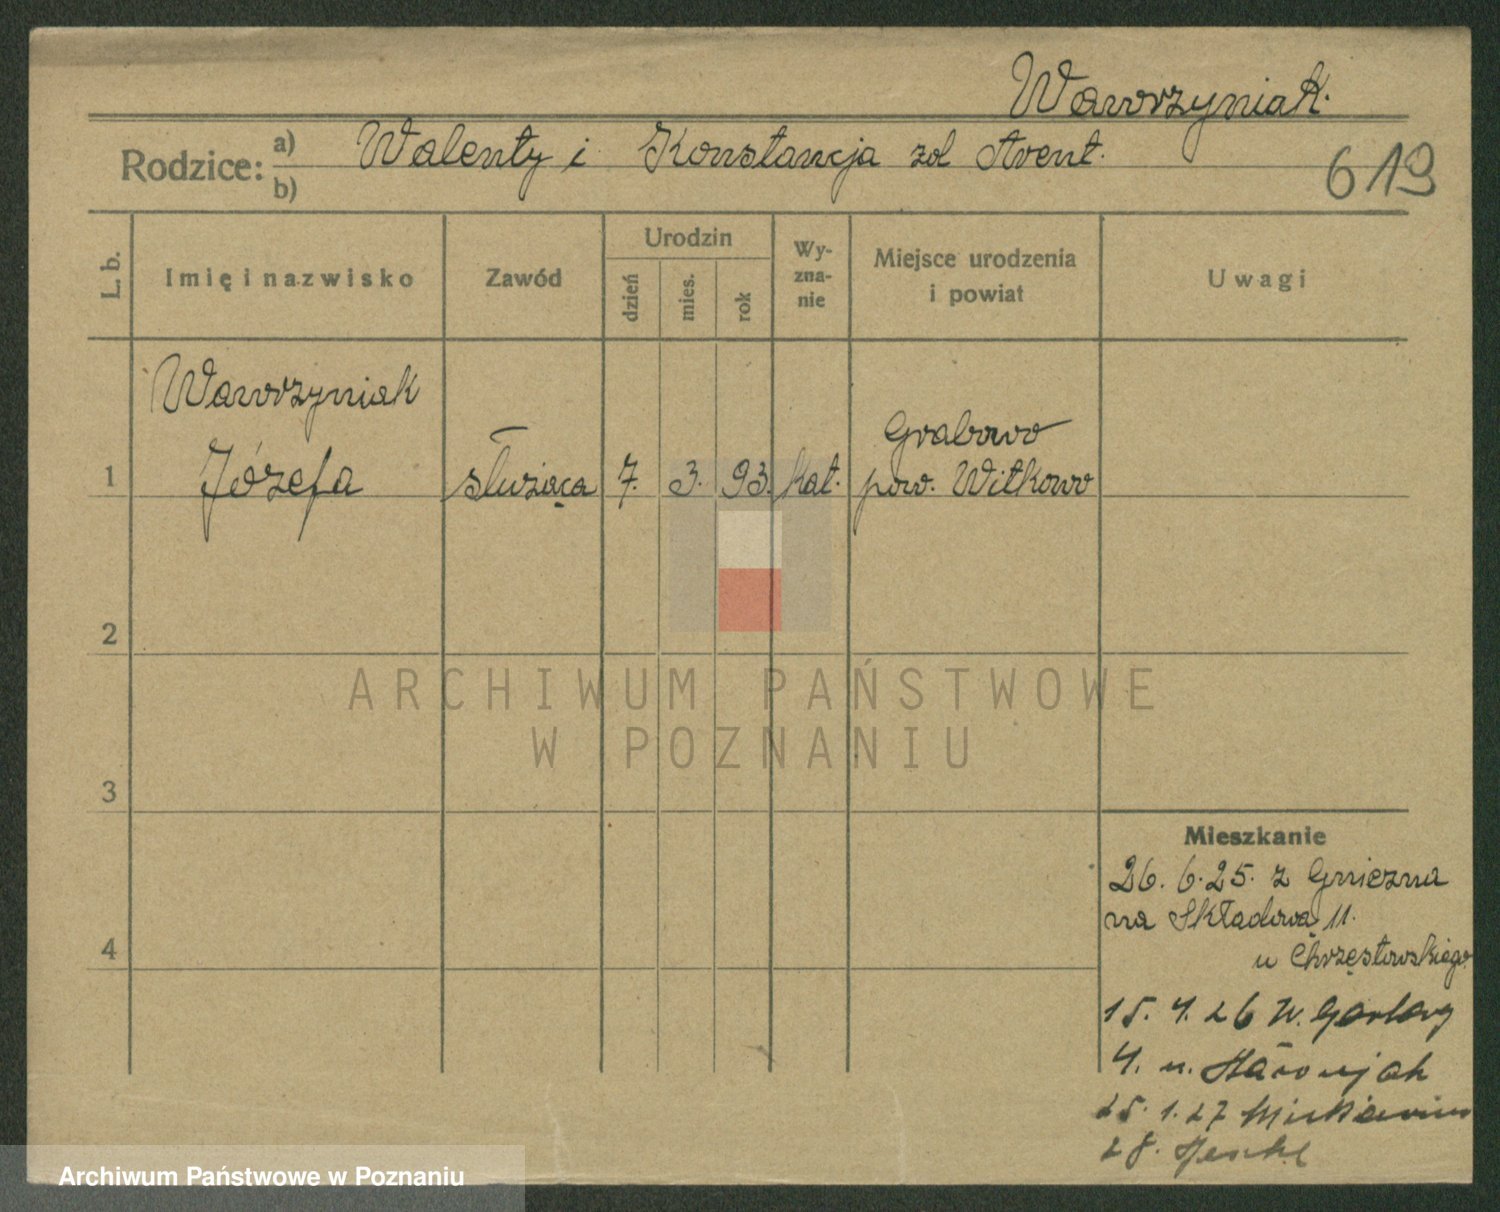 Wawrzyniak.
Rodzice: a) Walenty i Konstancja zd Arent.
b)
619
L. b.
Imię i nazwisko
Zawód
Urodzin
dzień
mies.
rok
Wy-
zna-
nie
Miejsce urodzenia
i powiat
Uwagi
Wawrzyniak
1 Józefa służąca 7. 3. 93. kat. Grabowo
pow. Witkowo
2
3
4
ARCHIWUM PAŃSTWOWE
W POZNANIU
Mieszkanie
26. 6. 25. z Gniezna
na Składową 11.
u Chrzęstowskiego
15. 4. 26 W. Garbary
4. u.
25. 1. 27
28.
Archiwum Państwowe w Poznaniu